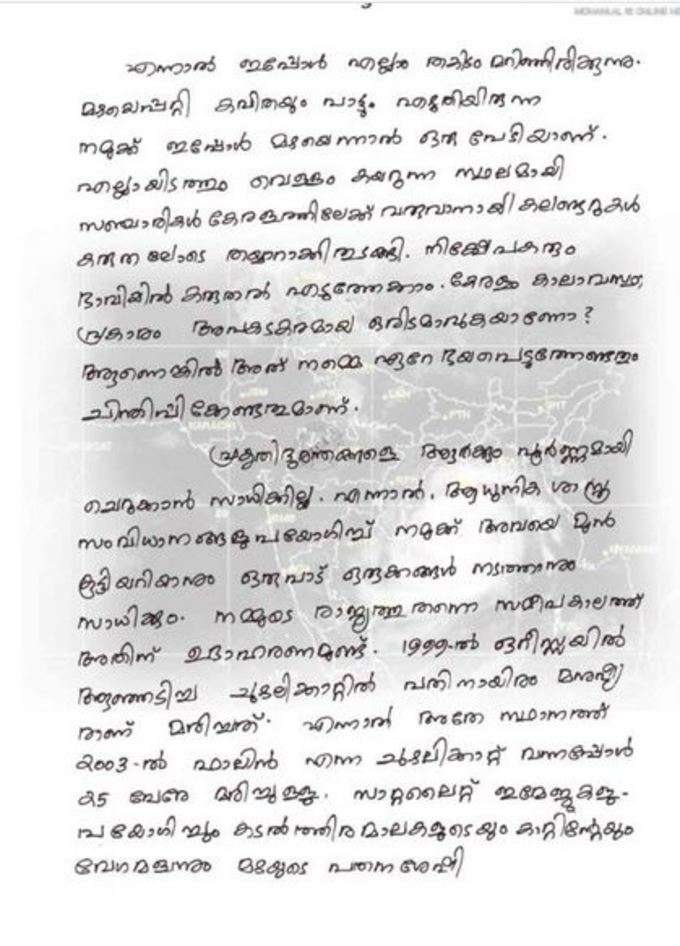 MOHANLAL
എന്നാൽ ഇപ്പോൾ എല്ലാം തകിടം മറിഞ്ഞിരിക്കുന്നു.
മഴയെപ്പറ്റി കവിതയും പാട്ടും എഴുതിയിരുന്ന
നമുക്ക് ഇപ്പോൾ മഴയെന്നാൽ ഒരു പേടിയാണ്.
എല്ലായിടത്തും വെള്ളം കയറുന്ന സ്ഥലമായി
സഞ്ചാരികൾ കേരളത്തിലേക്ക് വരുവാനായി കലണ്ടറുകൾ
കരുതലോടെ തയ്യാറാക്കി തുടങ്ങി. നിക്ഷേപകരും
ഭാവിയിൽ കരുതൽ എടുത്തേക്കാം. കേരളം കാലാവസ്ഥാ
പ്രകാരം അപകടകരമായ ഒരിടമാവുകയാണോ?
ആണെങ്കിൽ അത് നമ്മെ ഏറെ ഭയപ്പെടുത്തേണ്ടതും
ചിന്തിപ്പിക്കേണ്ടതുമാണ്.
പ്രകൃതിദുരന്തങ്ങളെ ആർക്കും പൂർണ്ണമായി
ചെറുക്കാൻ സാധിക്കില്ല. എന്നാൽ, ആധുനിക ശാസ്ത്ര
സംവിധാനങ്ങളുപയോഗിച്ച് നമുക്ക് അവയെ മുൻ
കൂട്ടിയറിയാനും ഒരുപാട് ഒരുക്കങ്ങൾ നടത്താനും
സാധിക്കും. നമ്മുടെ രാജ്യത്തുതന്നെ സമീപകാലത്ത്
അതിന് ഉദാഹരണമുണ്ട്. 1999-ൽ ഒറീസ്സയിൽ
ആഞ്ഞടിച്ച ചുഴലിക്കാറ്റിൽ പതിനായിരം മനുഷ്യ
രാണ് മരിച്ചത്. എന്നാൽ അതേ സ്ഥാനത്ത്
2003-ൽ ഫാലിൻ എന്ന ചുഴലിക്കാറ്റ് വന്നപ്പോൾ
25 പേരേ മരിച്ചുള്ളു. സാറ്റലൈറ്റ് ഇമേജുകളു-
പയോഗിച്ചും കടൽത്തിരമാലകളുടെയും കാറ്റിന്റേയും
വേഗമളന്നും മഴയുടെ പതനശേഷി